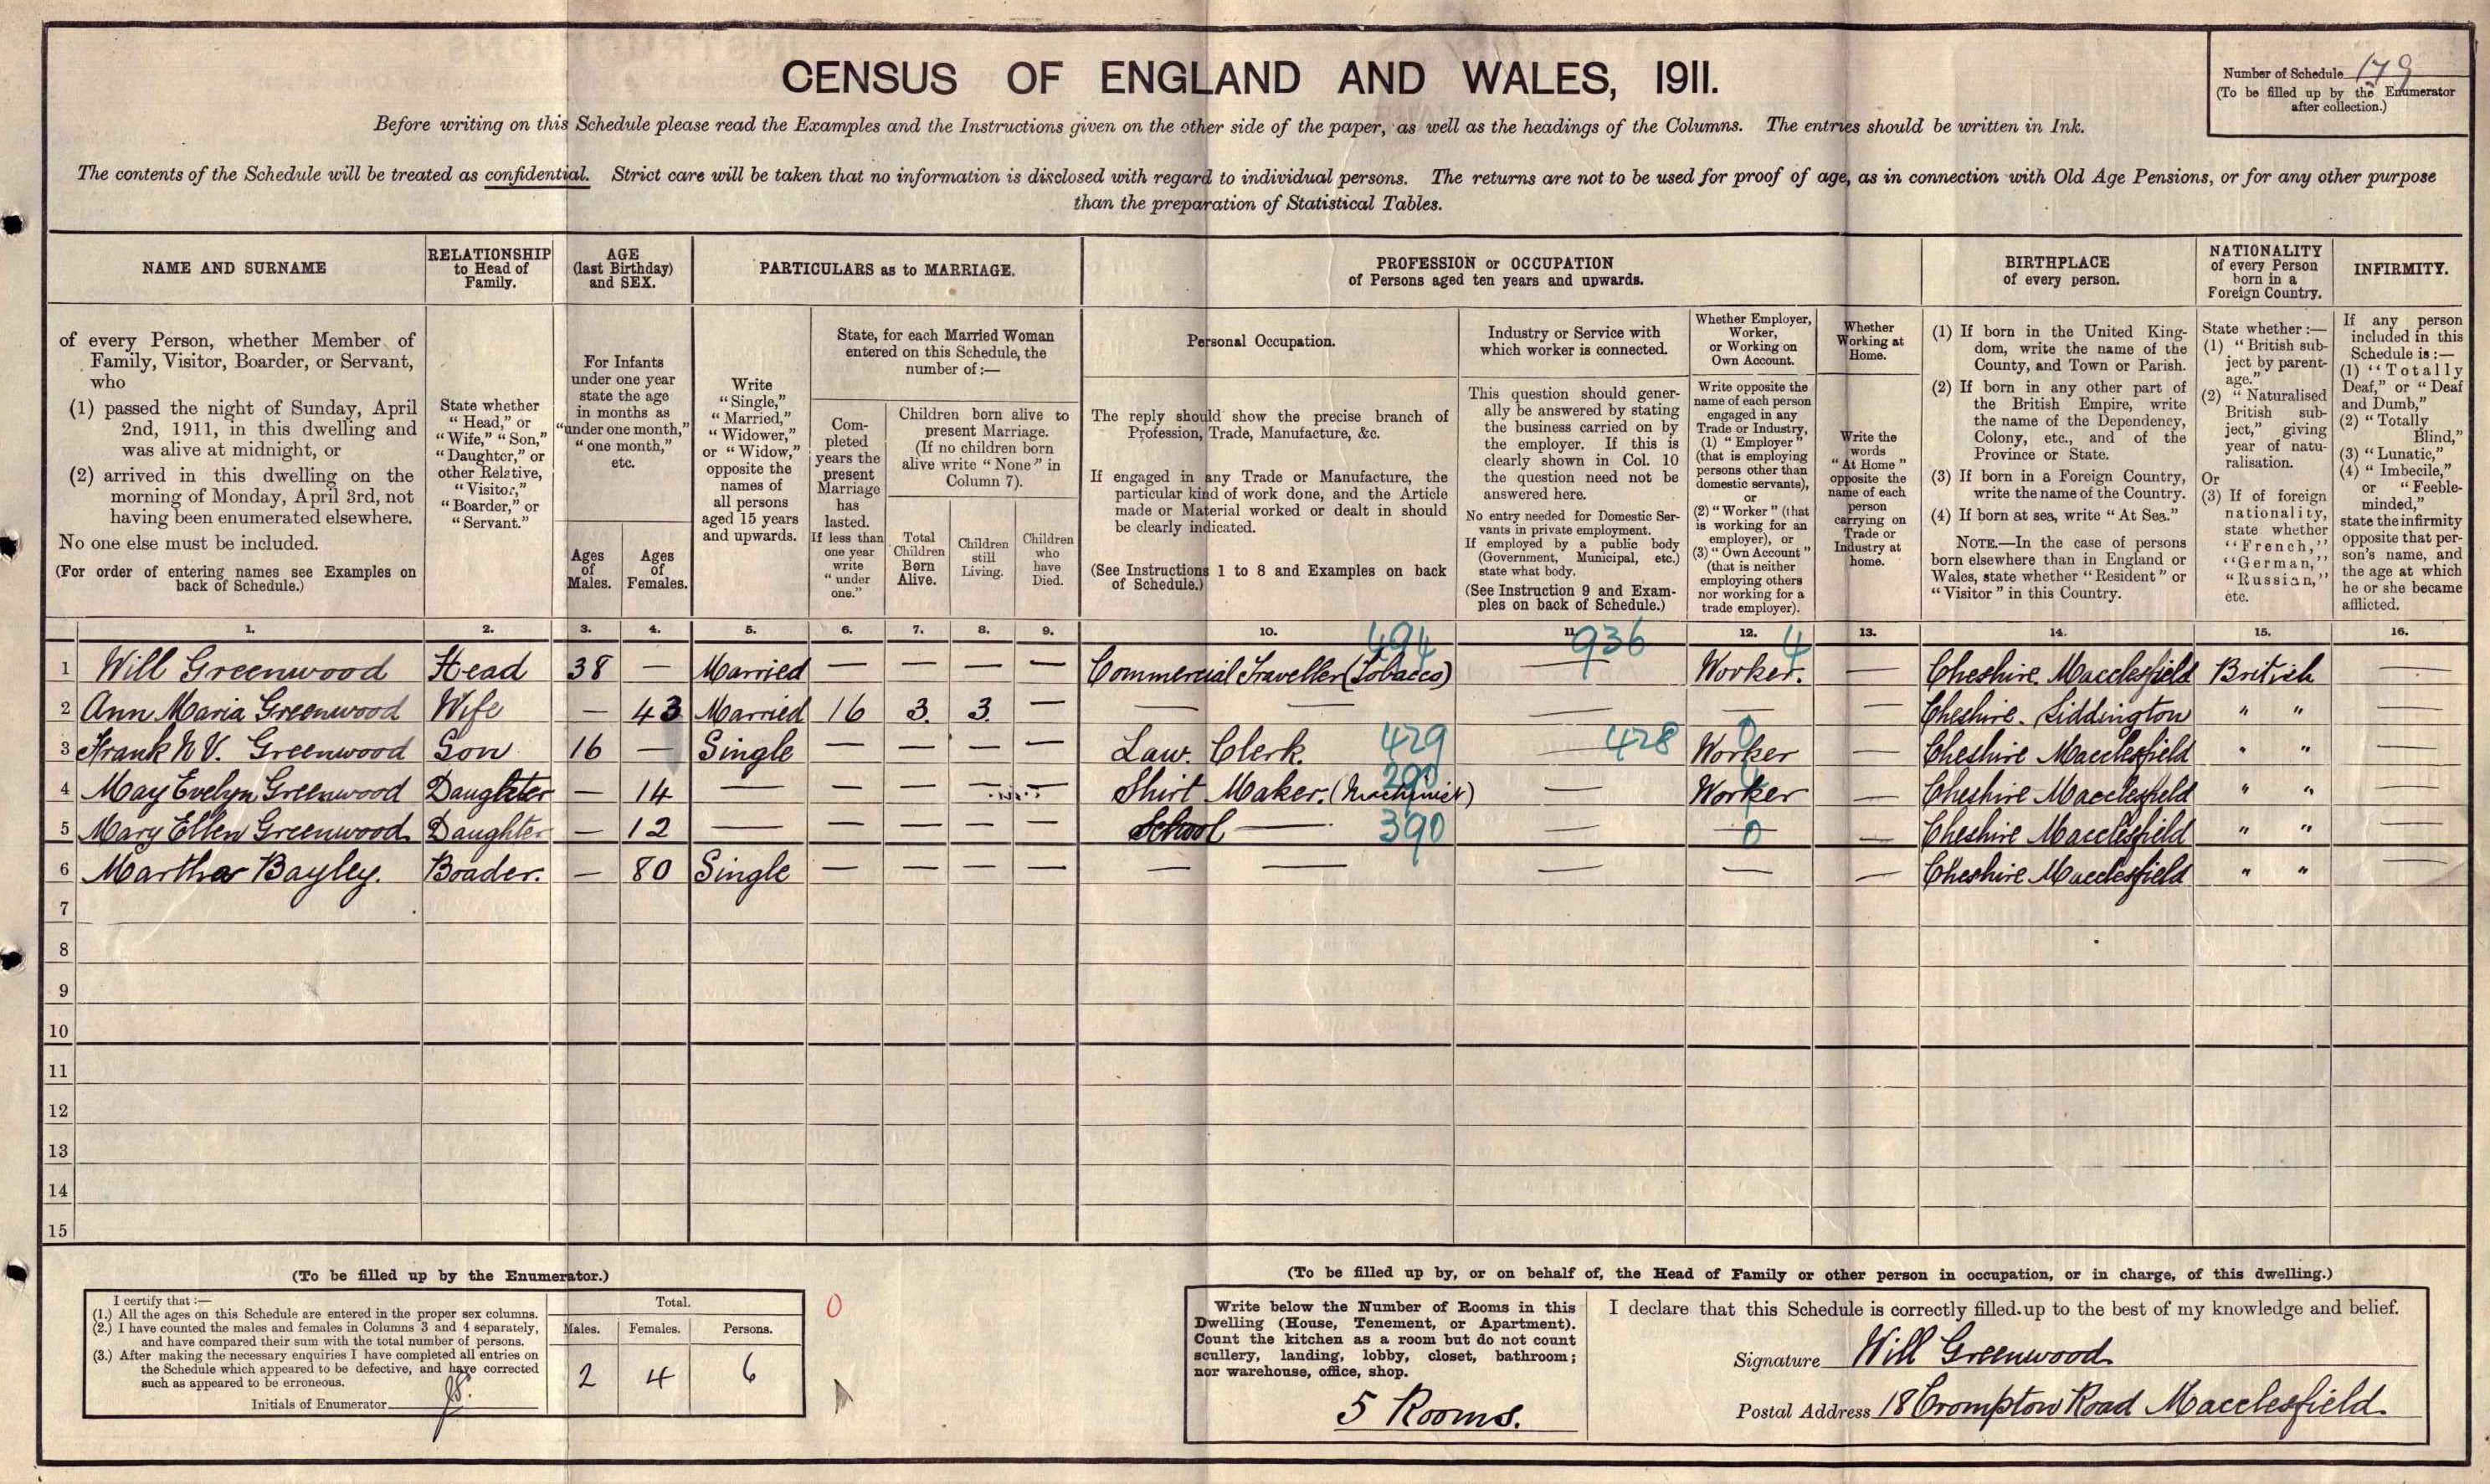 CENSUS OF ENGLAND AND WALES, 1911.
Number of Schedule 179
(To be filled up by the Enumerator
after collection.)
Before writing on this Schedule please read the Examples and the Instructions given on the other side of the paper, as well as the headings of the Columns. The entries should be written in Ink.
The contents of the Schedule will be treated as confidential. Strict care will be taken that no information is disclosed with regard to individual persons. The returns are not to be used for proof of age, as in connection with Old Age Pensions, or for any other purpose
than the preparation of Statistical Tables.
NAME AND SURNAME
of every Person, whether Member of
Family, Visitor, Boarder, or Servant,
who
(1) passed the night of Sunday, April
2nd, 1911, in this dwelling and
was alive at midnight, or
(2) arrived in this dwelling on the
morning of Monday, April 3rd, not
having been enumerated elsewhere.
No one else must be included.
(For order of entering names see Examples on
back of Schedule.)
RELATIONSHIP
to Head of
Family.
State whether
"Head," or
"Wife," "Son,"
"Daughter," or
other Relative,
"Visitor,"
"Boarder," or
"Servant."
AGE
(last Birthday)
and SEX.
For Infants
under one year
state the age
in months as
"under one month,"
"one month,"
etc.
Ages
of
Males.
Ages
of
Females.
PARTICULARS as to MARRIAGE.
Write
"Single,"
"Married,"
"Widower,"
or "Widow,"
opposite the
names of
all persons
aged 15 years
and upwards.
State, for each Married Woman
entered on this Schedule, the
number of:—
Com-
pleted
years the
present
Marriage
has
lasted.
If less than
one year
write
"under
one."
Children born alive to
present Marriage.
(If no children born
alive write "None" in
Column 7).
Total
Children
Born
Alive.
Children
still
Living.
Children
who
have
Died.
PROFESSION or OCCUPATION
of Persons aged ten years and upwards.
Personal Occupation.
The reply should show the precise branch of
Profession, Trade, Manufacture, &c.
If engaged in any Trade or Manufacture, the
particular kind of work done, and the Article
made or Material worked or dealt in should
be clearly indicated.
(See Instructions 1 to 8 and Examples on back
of Schedule.)
Industry or Service with
which worker is connected.
This question should gener-
ally be answered by stating
the business carried on by
the employer. If this is
clearly shown in Col. 10
the question need not be
answered here.
No entry needed for Domestic Ser-
vants in private employment.
If employed by a public body
(Government, Municipal, etc.)
state what body.
(See Instruction 9 and Exam-
ples on back of Schedule.)
Whether Employer,
Worker,
or Working on
Own Account.
Write opposite the
name of each person
engaged in any
Trade or Industry,
(1) "Employer"
(that is employing
persons other than
domestic servants),
or
(2) "Worker" (that
is working for an
employer), or
(3) "Own Account"
(that is neither
employing others
nor working for a
trade employer).
Whether
Working at
Home.
Write the
words
"At Home"
opposite the
name of each
person
carrying on
Trade or
Industry at
home.
BIRTHPLACE
of every person.
(1) If born in the United King-
dom, write the name of the
County, and Town or Parish.
(2) If born in any other part of
the British Empire, write
the name of the Dependency,
Colony, etc., and of the
Province or State.
(3) If born in a Foreign Country,
write the name of the Country.
(4) If born at sea, write "At Sea."
NOTE.—In the case of persons
born elsewhere than in England or
Wales, state whether "Resident" or
"Visitor" in this Country.
NATIONALITY
of every Person
born in a
Foreign Country.
State whether:—
(1) "British sub-
ject by parent-
age."
(2) "Naturalised
British sub-
ject," giving
year of natu-
ralisation.
Or
(3) If of foreign
nationality,
state whether
"French,"
"German,"
"Russian,"
etc.
INFIRMITY.
If any person
included in this
Schedule is:—
(1) "Totally
Deaf," or "Deaf
and Dumb,"
(2) "Totally
Blind,"
(3) "Lunatic,"
(4) "Imbecile,"
or "Feeble-
minded,"
state the infirmity
opposite that per-
son's name, and
the age at which
he or she became
afflicted.
1. 2. 3. 4. 5. 6. 7. 8. 9. 10. 11. 12. 13. 14. 15. 16.
494 936 4
1 Will Greenwood Head 38 — Married — — — — Commercial Traveller (Tobacco) — Worker. — Cheshire. Macclesfield British —
2 Ann Maria Greenwood Wife — 43 Married 16 3. 3. — — — — — — Cheshire. Siddington " " —
3 Frank N V. Greenwood Son 16 — Single — — — — Law. Clerk. 429 — 428 Worker 0 — Cheshire Macclesfield " " —
4 May Evelyn Greenwood Daughter — 14 — — — — — Shirt Maker. (Machinist) 290 — Worker — Cheshire Macclesfield " " —
5 Mary Ellen Greenwood Daughter — 12 — — — — — School — 390 — 0 — Cheshire Macclesfield " " —
6 Martha Bayley. Boader. — 80 Single — — — — — — — — — Cheshire Macclesfield " " —
7
8
9
10
11
12
13
14
15
(To be filled up by the Enumerator.)
I certify that:—
(1.) All the ages on this Schedule are entered in the proper sex columns.
(2.) I have counted the males and females in Columns 3 and 4 separately,
and have compared their sum with the total number of persons.
(3.) After making the necessary enquiries I have completed all entries on
the Schedule which appeared to be defective, and have corrected
such as appeared to be erroneous.
Initials of Enumerator
Total.
Males. Females. Persons.
2 4 6
0
(To be filled up by, or on behalf of, the Head of Family or other person in occupation, or in charge, of this dwelling.)
Write below the Number of Rooms in this
Dwelling (House, Tenement, or Apartment).
Count the kitchen as a room but do not count
scullery, landing, lobby, closet, bathroom;
nor warehouse, office, shop.
5 Rooms.
I declare that this Schedule is correctly filled up to the best of my knowledge and belief.
Signature Will Greenwood
Postal Address 18 Crompton Road Macclesfield.